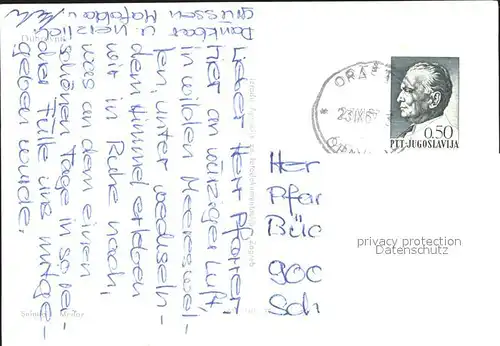 Lieber Herr Pfarrer!
her an würziger Luft,
in wilden Meereswel-
len, unter wechseln-
dem Himmel erleben
wir in Ruhe nach,
was an dem einen
schönen Tage in so rei-
cher Fülle uns mitge-
geben wurde.
Dankbar
u. herzlich
grüssen Mafalda u.
Her
Pfar
Büc
900
Sch
0.50
PTT-JUGOSLAVIJA
privacy protection
Datenschutz